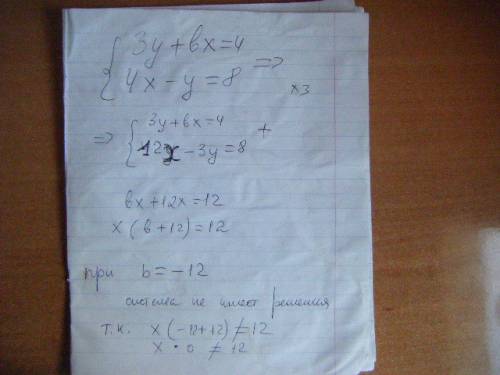 3y + bx = 4
4x - y = 8 =>
x3
=> 3y + bx = 4
12x - 3y = 8 +
bx + 12x = 12
x (b + 12) = 12
при b = -12
система не имеет решения
т.к. x (-12 + 12) ≠ 12
x · 0 ≠ 12